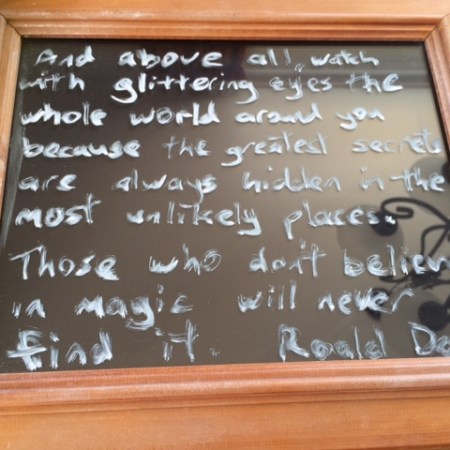 And above all, watch
with glittering eyes the
whole world around you
because the greatest secrets
are always hidden in the
most unlikely places.
Those who don't believe
in magic will never
find it. Roald Da